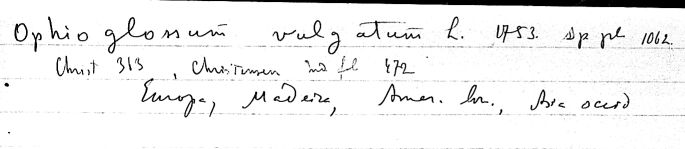 Ophioglossum vulgatum L. 1753. Sp pl 1062.
Christ 313, Christensen Ind fil 472
Europa, Madeira, Amer. bor., Asia occid